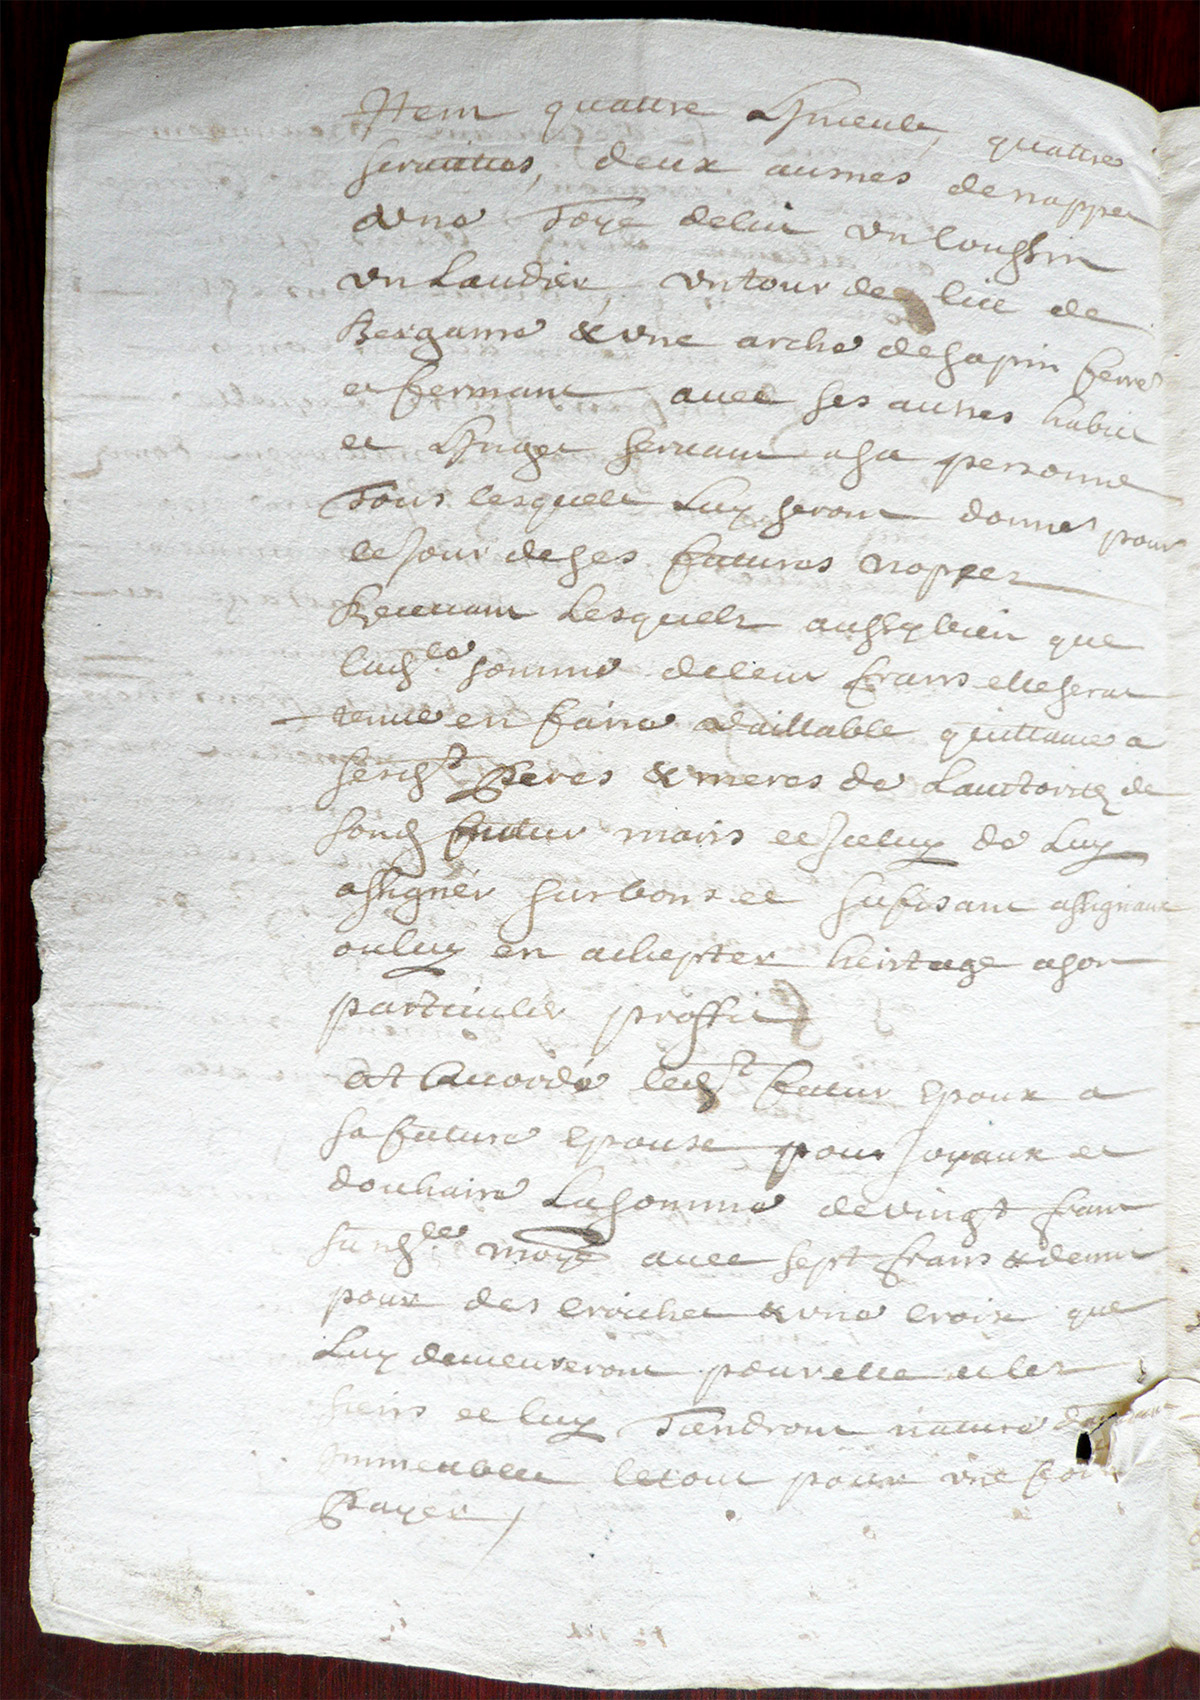 Item quattre Linceulx, quattre
serviettes, deux ausnes de nappes
une Toye de lict un coussin
un Landier, un tour de lict de
Bergame & une arche de sapin ferré
et fermant avec ses autres habits
et Linges servant a sa personne
Tous lesquels Luy seront donnés pour
le Jour de ses futures nopces
Recevant Lesquels aussy bien que
lad.te somme de cent frans elle sera
tenue en faire vaillable quittance a
sesd.t Peres & meres de Lauctorité de
sond futur maris et Iceluy de Luy
assigner sur bons et sufisant assignaux
ou luy en achepter heritage a son
particulier proffit
At Accordé led.t futur Epoux a
sa future Epouse pour Joyaux et
douhaire La somme de vingt frans
susd.te moñoye avec sept frans & demi
pour des crochet & une croix que
Luy demeureront pour elle et les
siens et luy Tiendront nature
Immeubles le tout pour une fois
Payer /